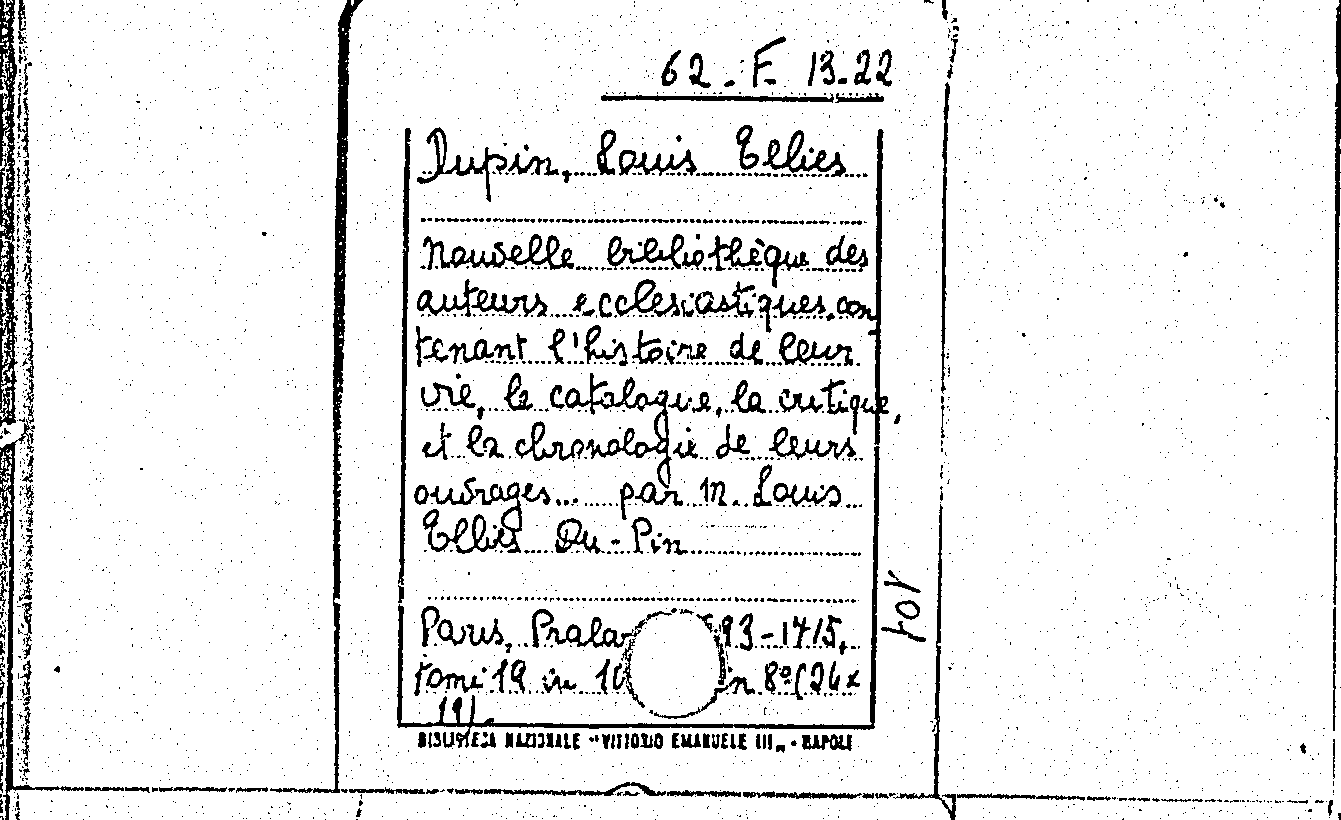 62-F-13-22
Dupin, Louis Ellies
Nouvelle bibliothèque des
auteurs ecclesiastiques, con
tenant l'histoire de leur
vie, le catalogue, la critique,
et la chronologie de leurs
ouvrages... par m. Louis
Ellies Du-Pin
Paris, Prala 93-1715,
tomi 19 in 10 in 8º (24x
19).
BIBLIOTECA NAZIONALE "VITTORIO EMANUELE III" - NAPOLI